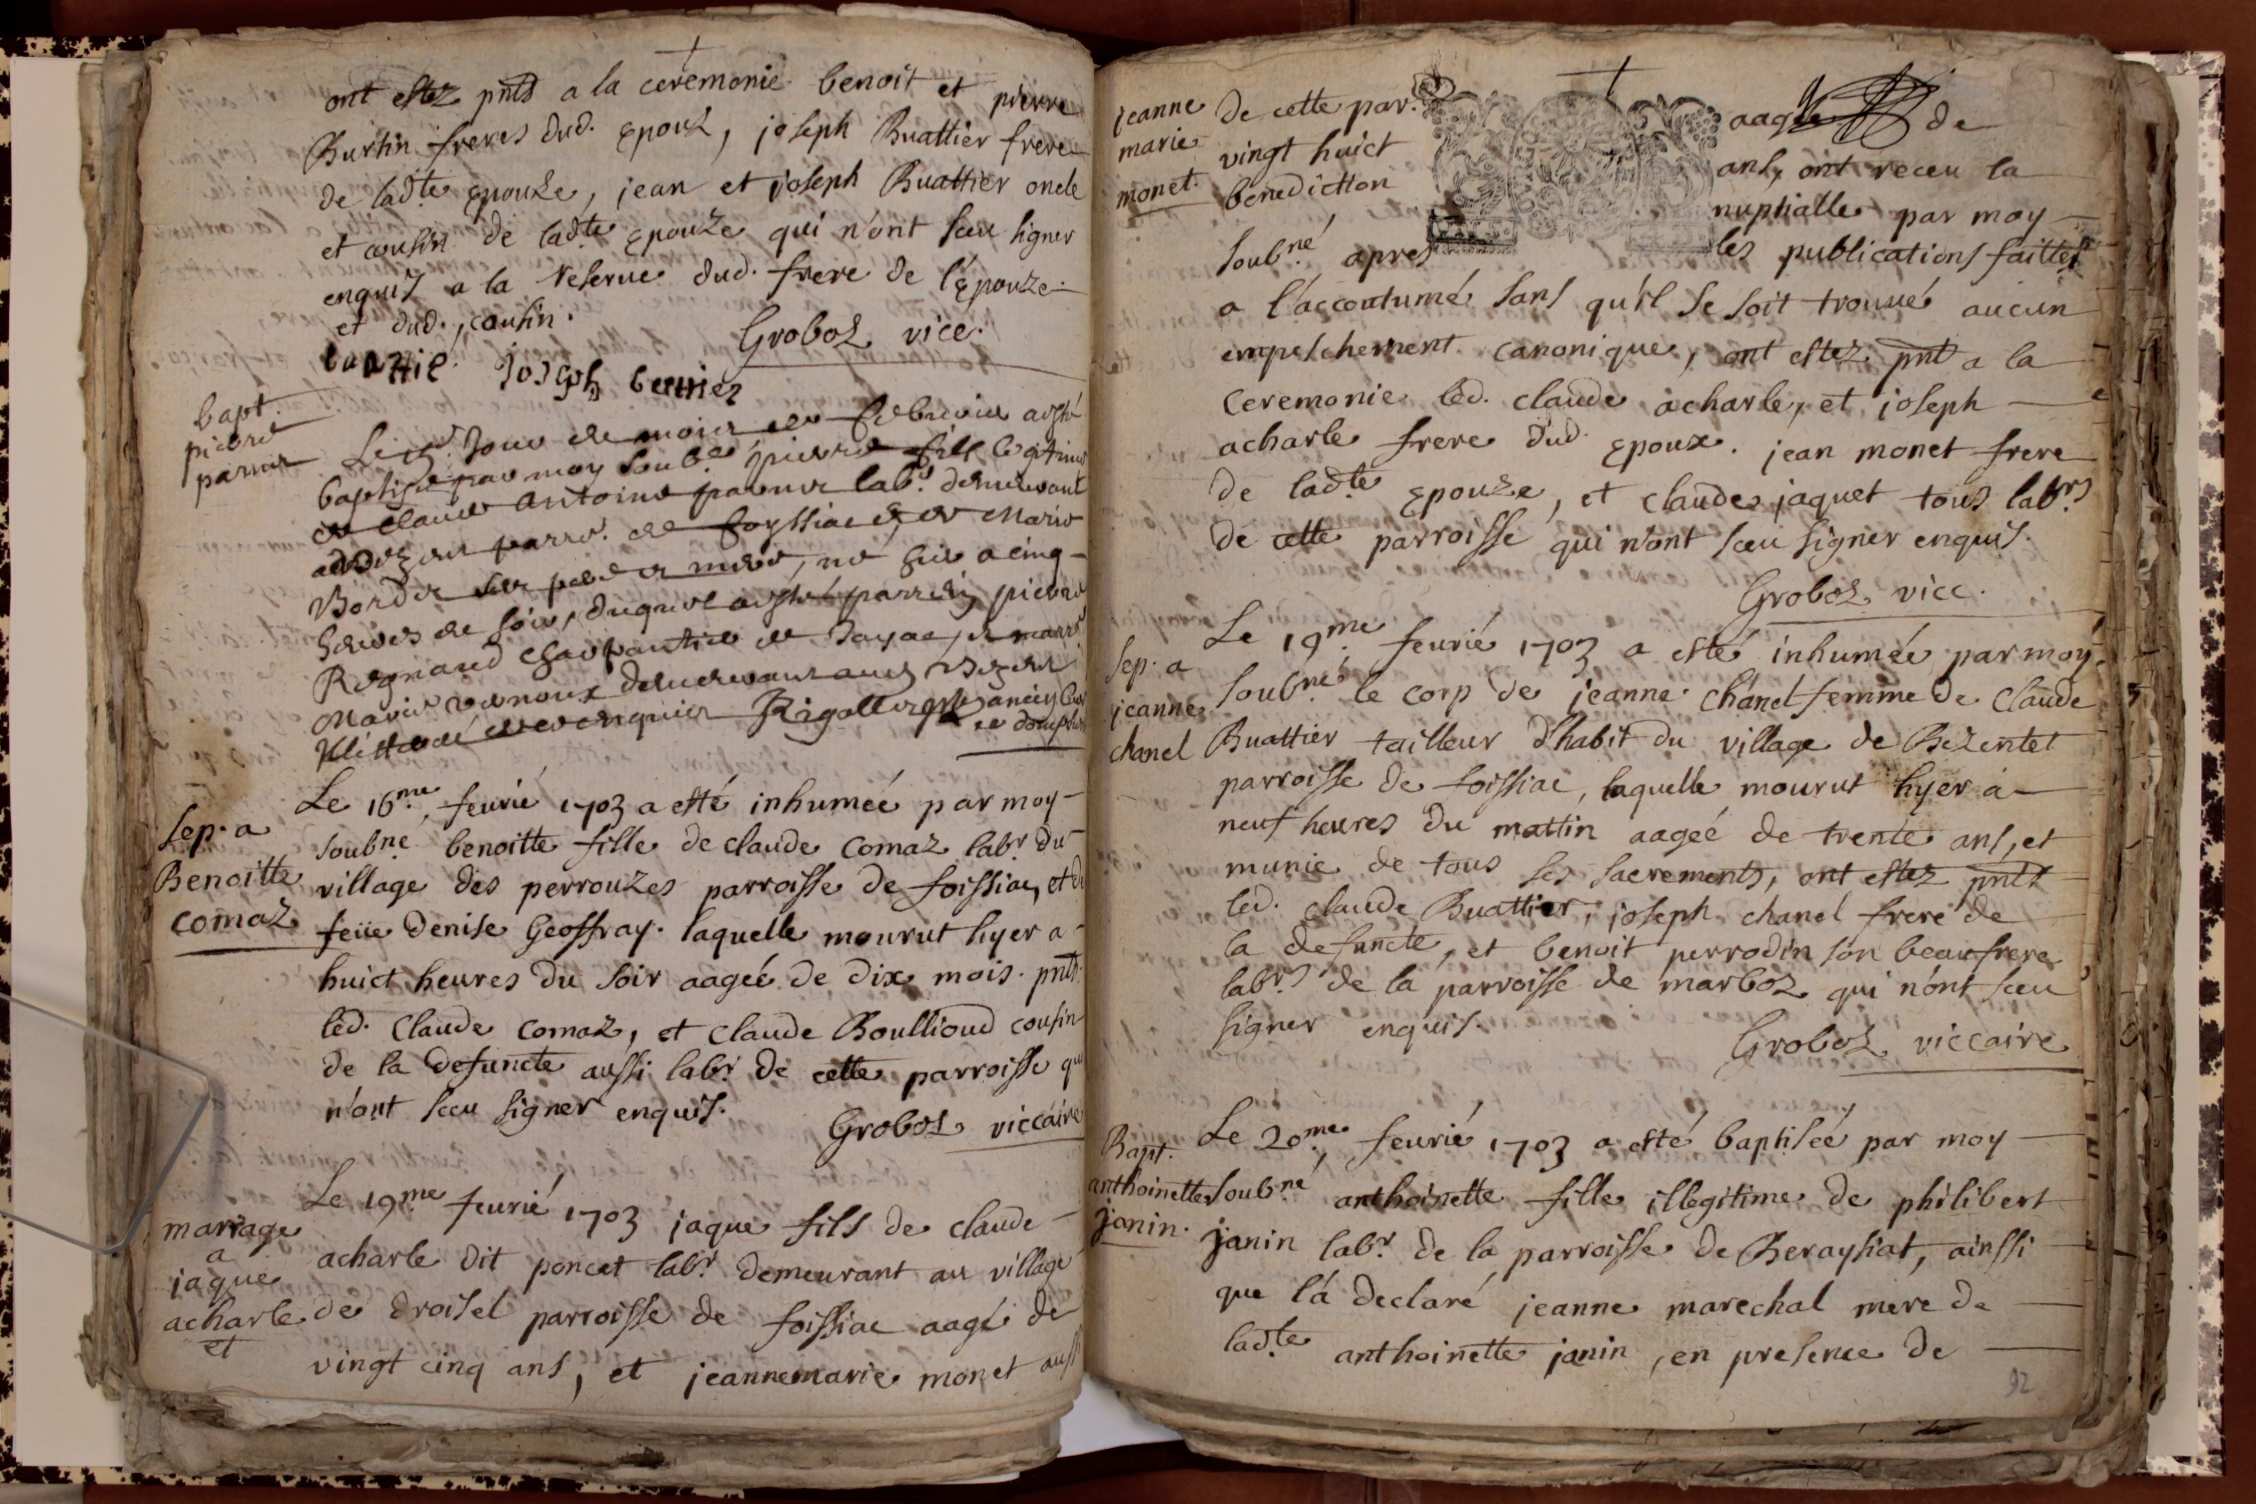 ont estez pnts a la ceremonie benoit et pierre
Burtin freres dud. epoux, joseph Buattier frere
de ladte epouze, jean et joseph Buattier oncle
et cousin de ladte epouze qui n'ont sceu signer
enquis a la reserve dud. frere de l'epouze
et dud. cousin.
Groboz vice.
buattié Joseph
bapt.
pierre
Le jour du mois de febvrier a esté
baptisé par moy soubné pierre fils legitime
de claude antoine labr. demeurant
parro. de foyssia et de Marie
Border ses pere et mere, né hier a cinq
heures de soir, duquel a esté parrein pierre
Regnaud charpantier de Jayac, et marr.
Marie demeurant
Illitteré de ce enquis Rigollet
Sep. a
Benoitte
comaz
Le 16me. feurié 1703 a esté inhumée par moy
soubne. benoitte fille de claude comaz labr. du
village des perrouzes parroisse de foissiac, et de
feüe denise Geoffray. laquelle mourut hyer a
huict heures du soir aagée de dix mois. pnts.
led. claude comaz, et claude Boullioud cousin
de la defuncte aussi labr. de cette parroisse qui
n'ont sceu signer enquis.
Groboz viccaire
mariage
a
jaque
acharle
et
Le 19me feurié 1703 jaque fils de claude
acharle dit poncet labr. demeurant au village
de droisel parroisse de foissiac aagé de
vingt cinq ans, et jeannemarie monet aussi
jeanne
marie
monet.
de cette par. aagée de
vingt huict ans, ont receu la
benediction nuptialle par moy
soubné. apres les publications faittes
a l'accoutumé sans qu'il se soit trouué aucun
empeschement canonique, ont estez pnt a la
ceremonie led. claude acharle, et joseph
acharle frere dud. epoux. jean monet frere
de ladte epouze, et claude jaquet tous labrs
de cette parroisse qui n'ont sceu signer enquis.
Groboz vicc.
Sep. a
jeanne
chanel
Le 19me. feurié 1703 a esté inhumée par moy
soubné. le corp de jeanne chanel femme de claude
Buattier tailleur d'habit du village de Bezentet
parroisse de foissiac, laquelle mourut hyer a
neuf heures du mattin aagée de trente ans, et
munie de tous ses sacrements, ont estez pnts
led. claude Buattier, joseph chanel frere de
la defuncte, et benoit perrodin son beaufrere
labrs. de la parroisse de marboz qui n'ont sceu
signer enquis.
Groboz viccaire
Bapt.
anthoinette
janin.
Le 20me. feurié 1703 a esté baptisée par moy
soubné anthoinette fille illegitime de philibert
janin labr. de la parroisse de Beraysiat, ainssi
que l'a declaré jeanne marechal mere de
ladte anthoinette janin, en presence de
92